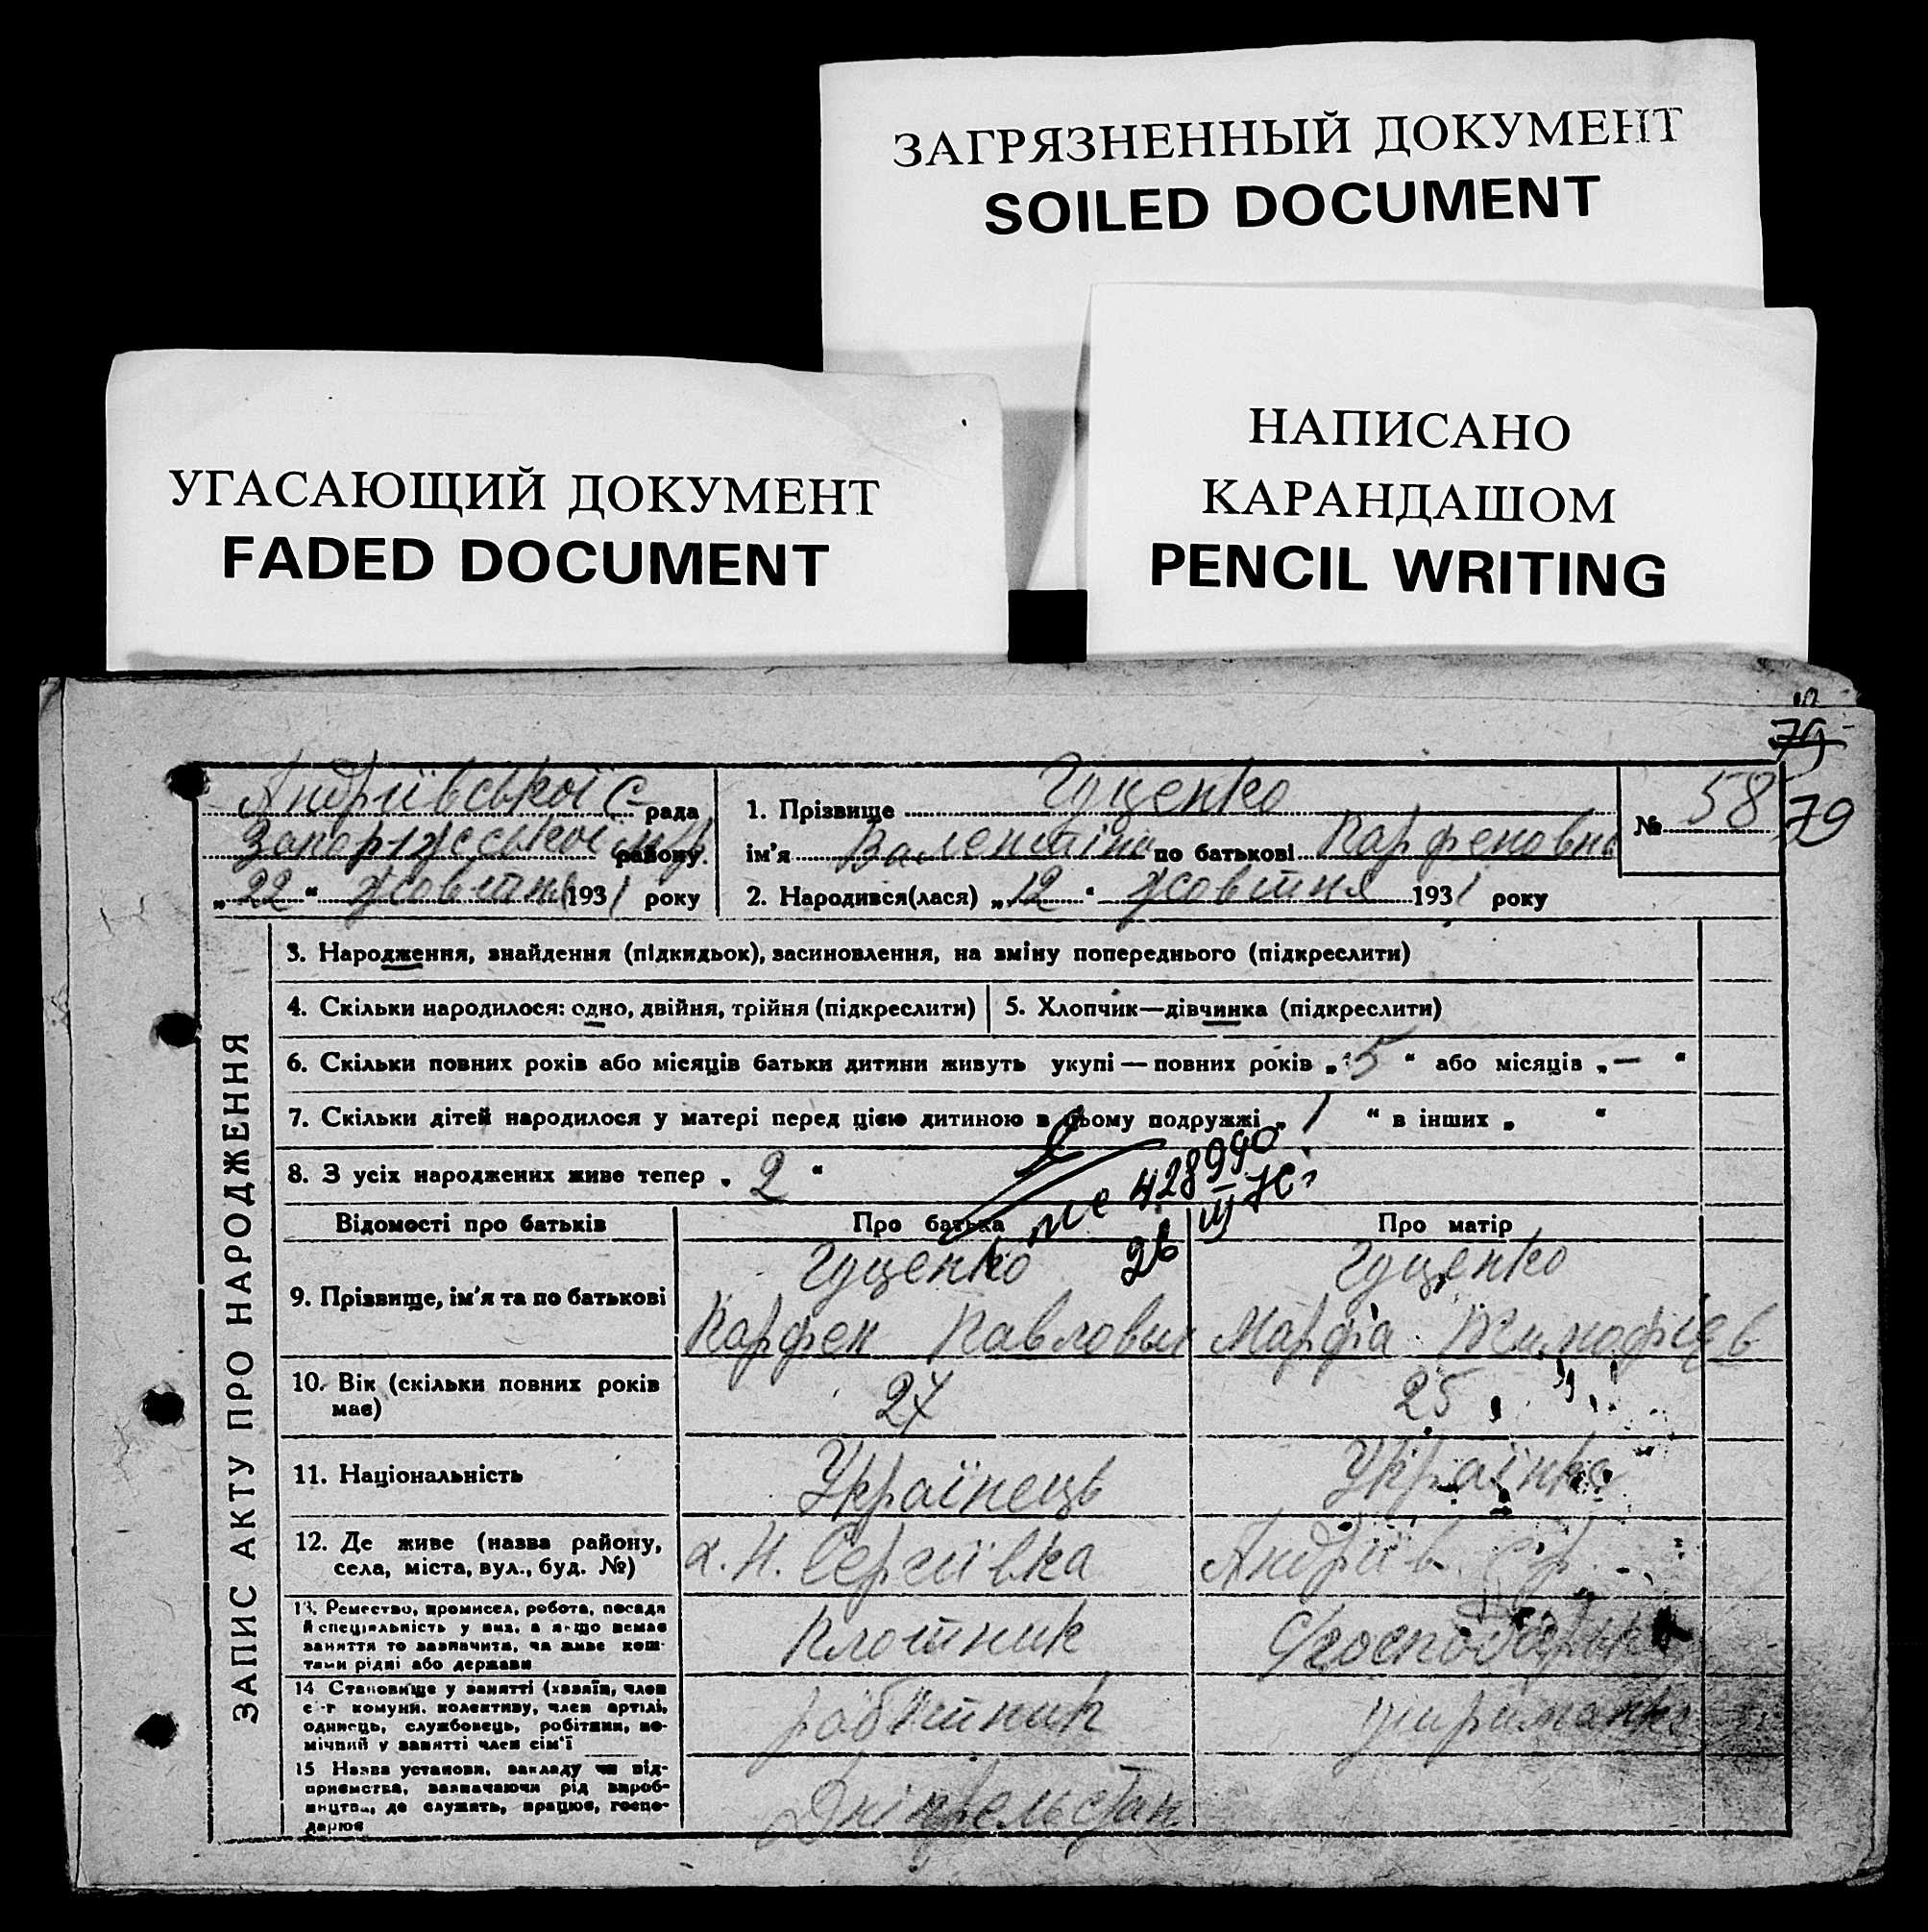 ЗАГРЯЗНЕННЫЙ ДОКУМЕНТ
SOILED DOCUMENT
УГАСАЮЩИЙ ДОКУМЕНТ
FADED DOCUMENT
НАПИСАНО
КАРАНДАШОМ
PENCIL WRITING
79
Андріївської С рада
Запоріжської району
„22“ жовтня 1931 року
1. Прізвище Гуценко
ім’я Валентина по батькові Парфеновна
2. Народився(лася) „12“ жовтня 1931 року
№ 58
79
ЗАПИС АКТУ ПРО НАРОДЖЕННЯ
3. Народження, знайдення (підкидьок), засиновлення, на зміну попереднього (підкреслити)
4. Скільки народилося: одно, двійня, трійня (підкреслити)
5. Хлопчик—дівчинка (підкреслити)
6. Скільки повних років або місяців батьки дитини живуть укупі — повних років „5“ або місяців „—“
7. Скільки дітей народилося у матері перед цією дитиною в цьому подружжі „1“ в інших „ “
8. З усіх народжених живе тепер „2“
428990
Відомості про батьків
Про батька
Про матір
9. Прізвище, ім’я та по батькові
Гуценко
Парфен Павлович
Гуценко
Марфа Тимофіев
10. Вік (скільки повних років має)
27
25
11. Національність
Українець
Українка
12. Де живе (назва району, села, міста, вул., буд. №)
х. Н. Сергіївка
Андріїв. С/р
13. Ремество, промисел, робота, посада й спеціяльність у них, а якщо немає заняття то зазначити, чи живе коштами рідні або держави
Плотник
Господарка
14 Становище у занятті (хазяїн, член с-г комуни, колективу, член артілі, одинець, службовець, робітник, помічний у занятті член сім’ї
робітник
утриманка
15 Назва установи, закладу чи підприємства, зазначаючи рід виробництва, де служить, працює, господарює